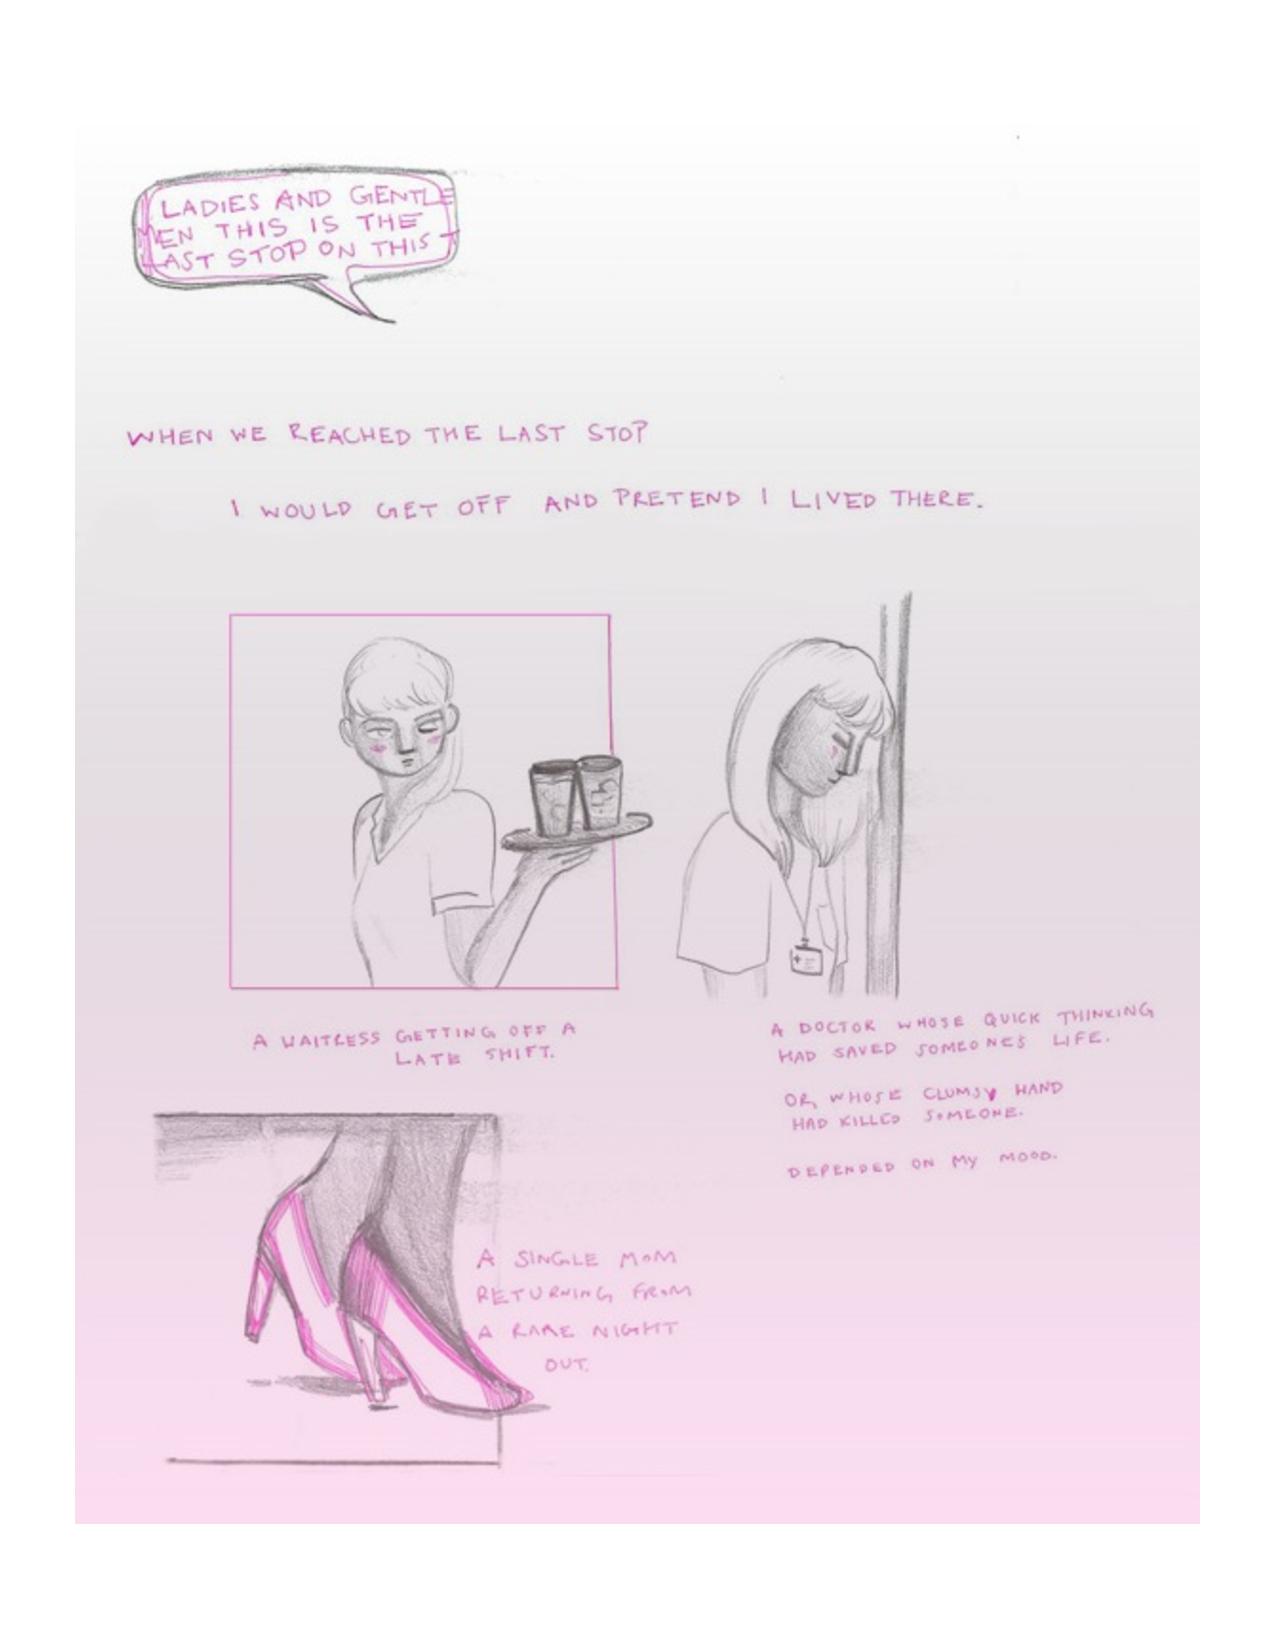 LADIES AND GENTLE
MEN THIS IS THE
LAST STOP ON THIS T
WHEN WE REACHED THE LAST STOP
I WOULD GET OFF AND PRETEND I LIVED THERE.
A WAITRESS GETTING OFF A
LATE SHIFT.
A DOCTOR WHOSE QUICK THINKING
HAD SAVED SOMEONE'S LIFE.
OR, WHOSE CLUMSY HAND
HAD KILLED SOMEONE.
DEPENDED ON MY MOOD.
A SINGLE MOM
RETURNING FROM
A RARE NIGHT
OUT.